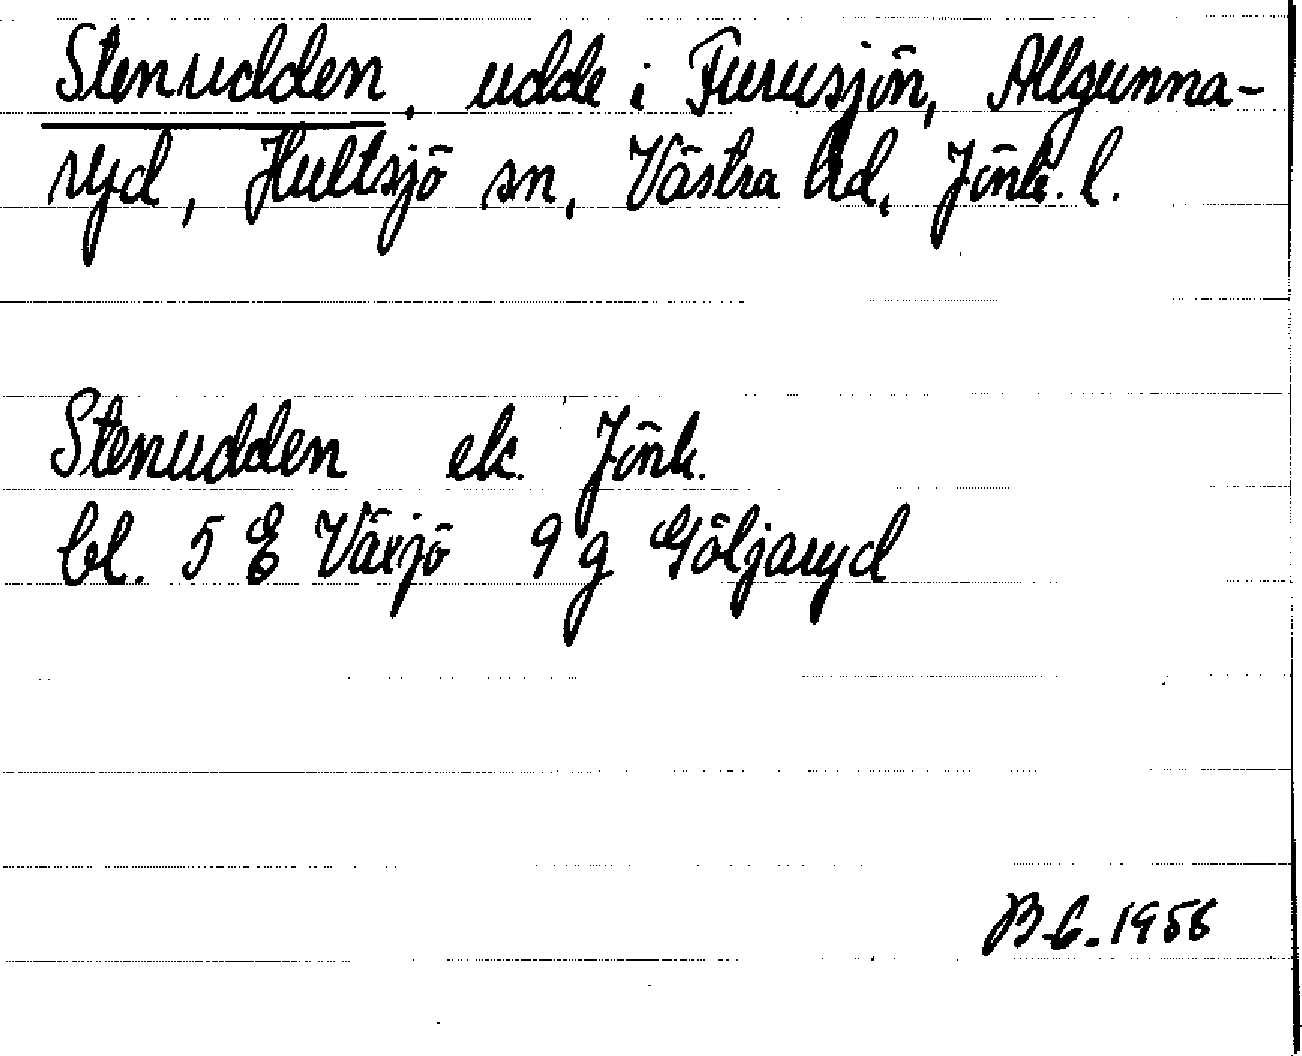 Stenudden, udde i Furusjön, Allgunna-
ryd, Hultsjö sn, Västra hd, Jönk. l.
Stenudden ek. Jönk.
bl. 5 E Växjö 9 g Göljaryd
1956